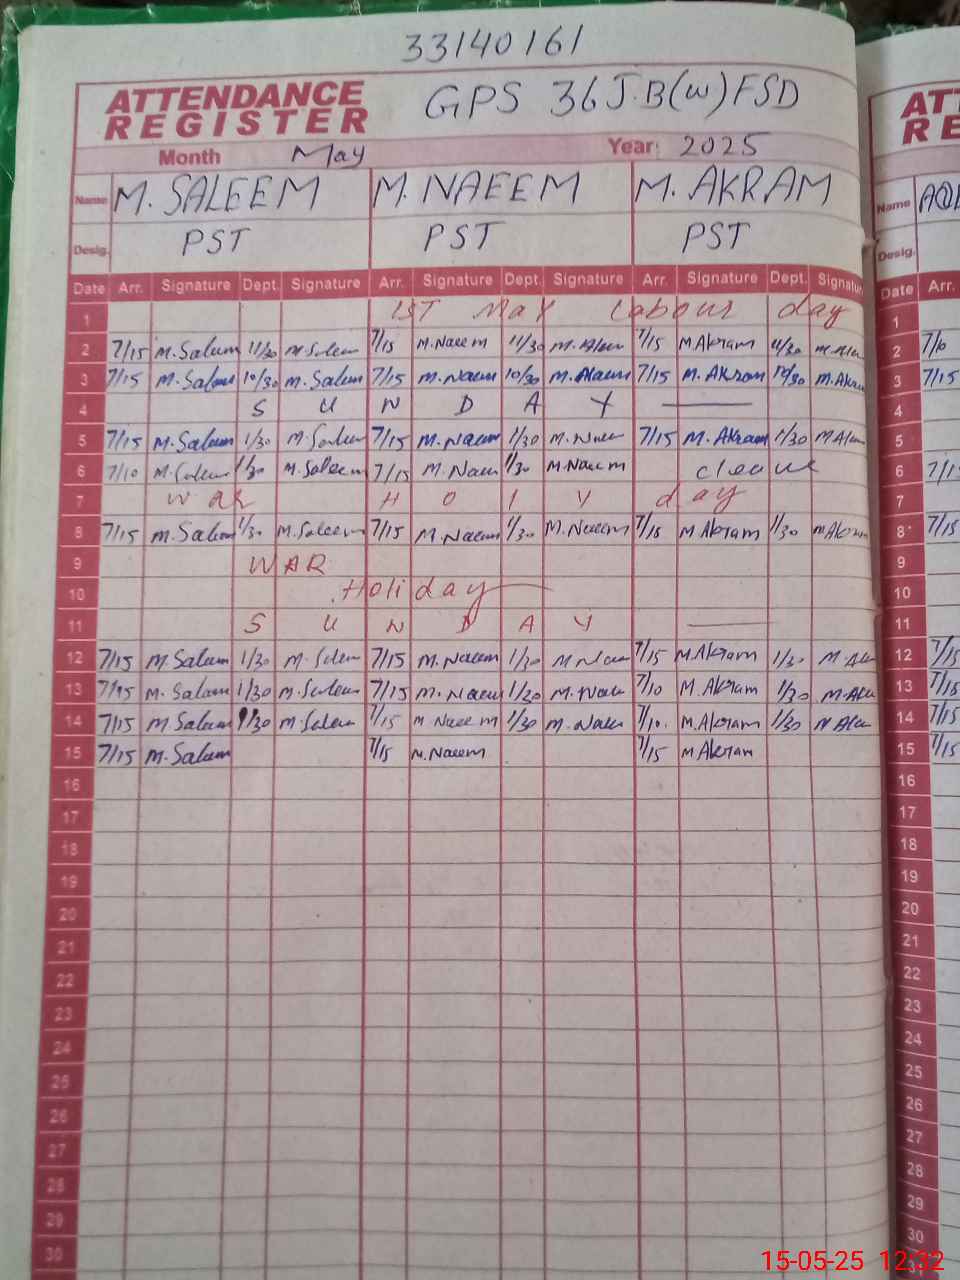 33140161
ATTENDANCE REGISTER GPS 36 J.B(W) FSD
Month May Year: 2025
Name M. SALEEM M. NAEEM M. AKRAM Name
Desig. PST PST PST Desig.
Date Arr. Signature Dept. Signature Arr. Signature Dept. Signature Arr. Signature Dept. Signature Date Arr.
1 1ST May Labour day 1
2 7/15 M.Saleem 11/30 M.Saleem 7/15 M.Naeem 11/30 7/15 M Akram 11/30 2 7/10
3 7/15 M.Saleem 10/30 M.Saleem 7/15 M.Naeem 10/30 7/15 M.Akram 10/30 M.Akram 3 7/15
4 S U N D A Y 4
5 7/15 M.Saleem 1/30 M.Saleem 7/15 M.Naeem 1/30 M.Naeem 7/15 M.Akram 1/30 5
6 7/10 M.Saleem 1/30 M.Saleem 7/15 M.Naeem 1/30 M.Naeem cleave 6 7/15
7 WAR H O I Y day 7
8 7/15 M.Saleem 1/30 M.Saleem 7/15 M.Naeem 1/30 M.Naeem 7/15 M Akram 1/30 M Akram 8 7/15
9 WAR 9
10 Holiday 10
11 S U N D A Y 11
12 7/15 M.Saleem 1/30 M.Saleem 7/15 M.Naeem 1/30 M Naeem 7/15 M.Akram 1/30 12 7/15
13 7/15 M.Saleem 1/30 M.Saleem 7/15 M.Naeem 1/30 M.Naeem 7/10 M.Akram 1/30 13 7/15
14 7/15 M Saleem 1/30 M.Saleem 7/15 M Naeem 1/30 M.Naeem 7/10. M.Akram 1/30 14 7/15
15 7/15 M.Saleem 7/15 M.Naeem 7/15 M Akram 15 7/15
16 16
17 17
18 18
19 19
20 20
21 21
22 22
23 23
24 24
25 25
26 26
27 27
28 28
29 29
30 30
15-05-25 12:32